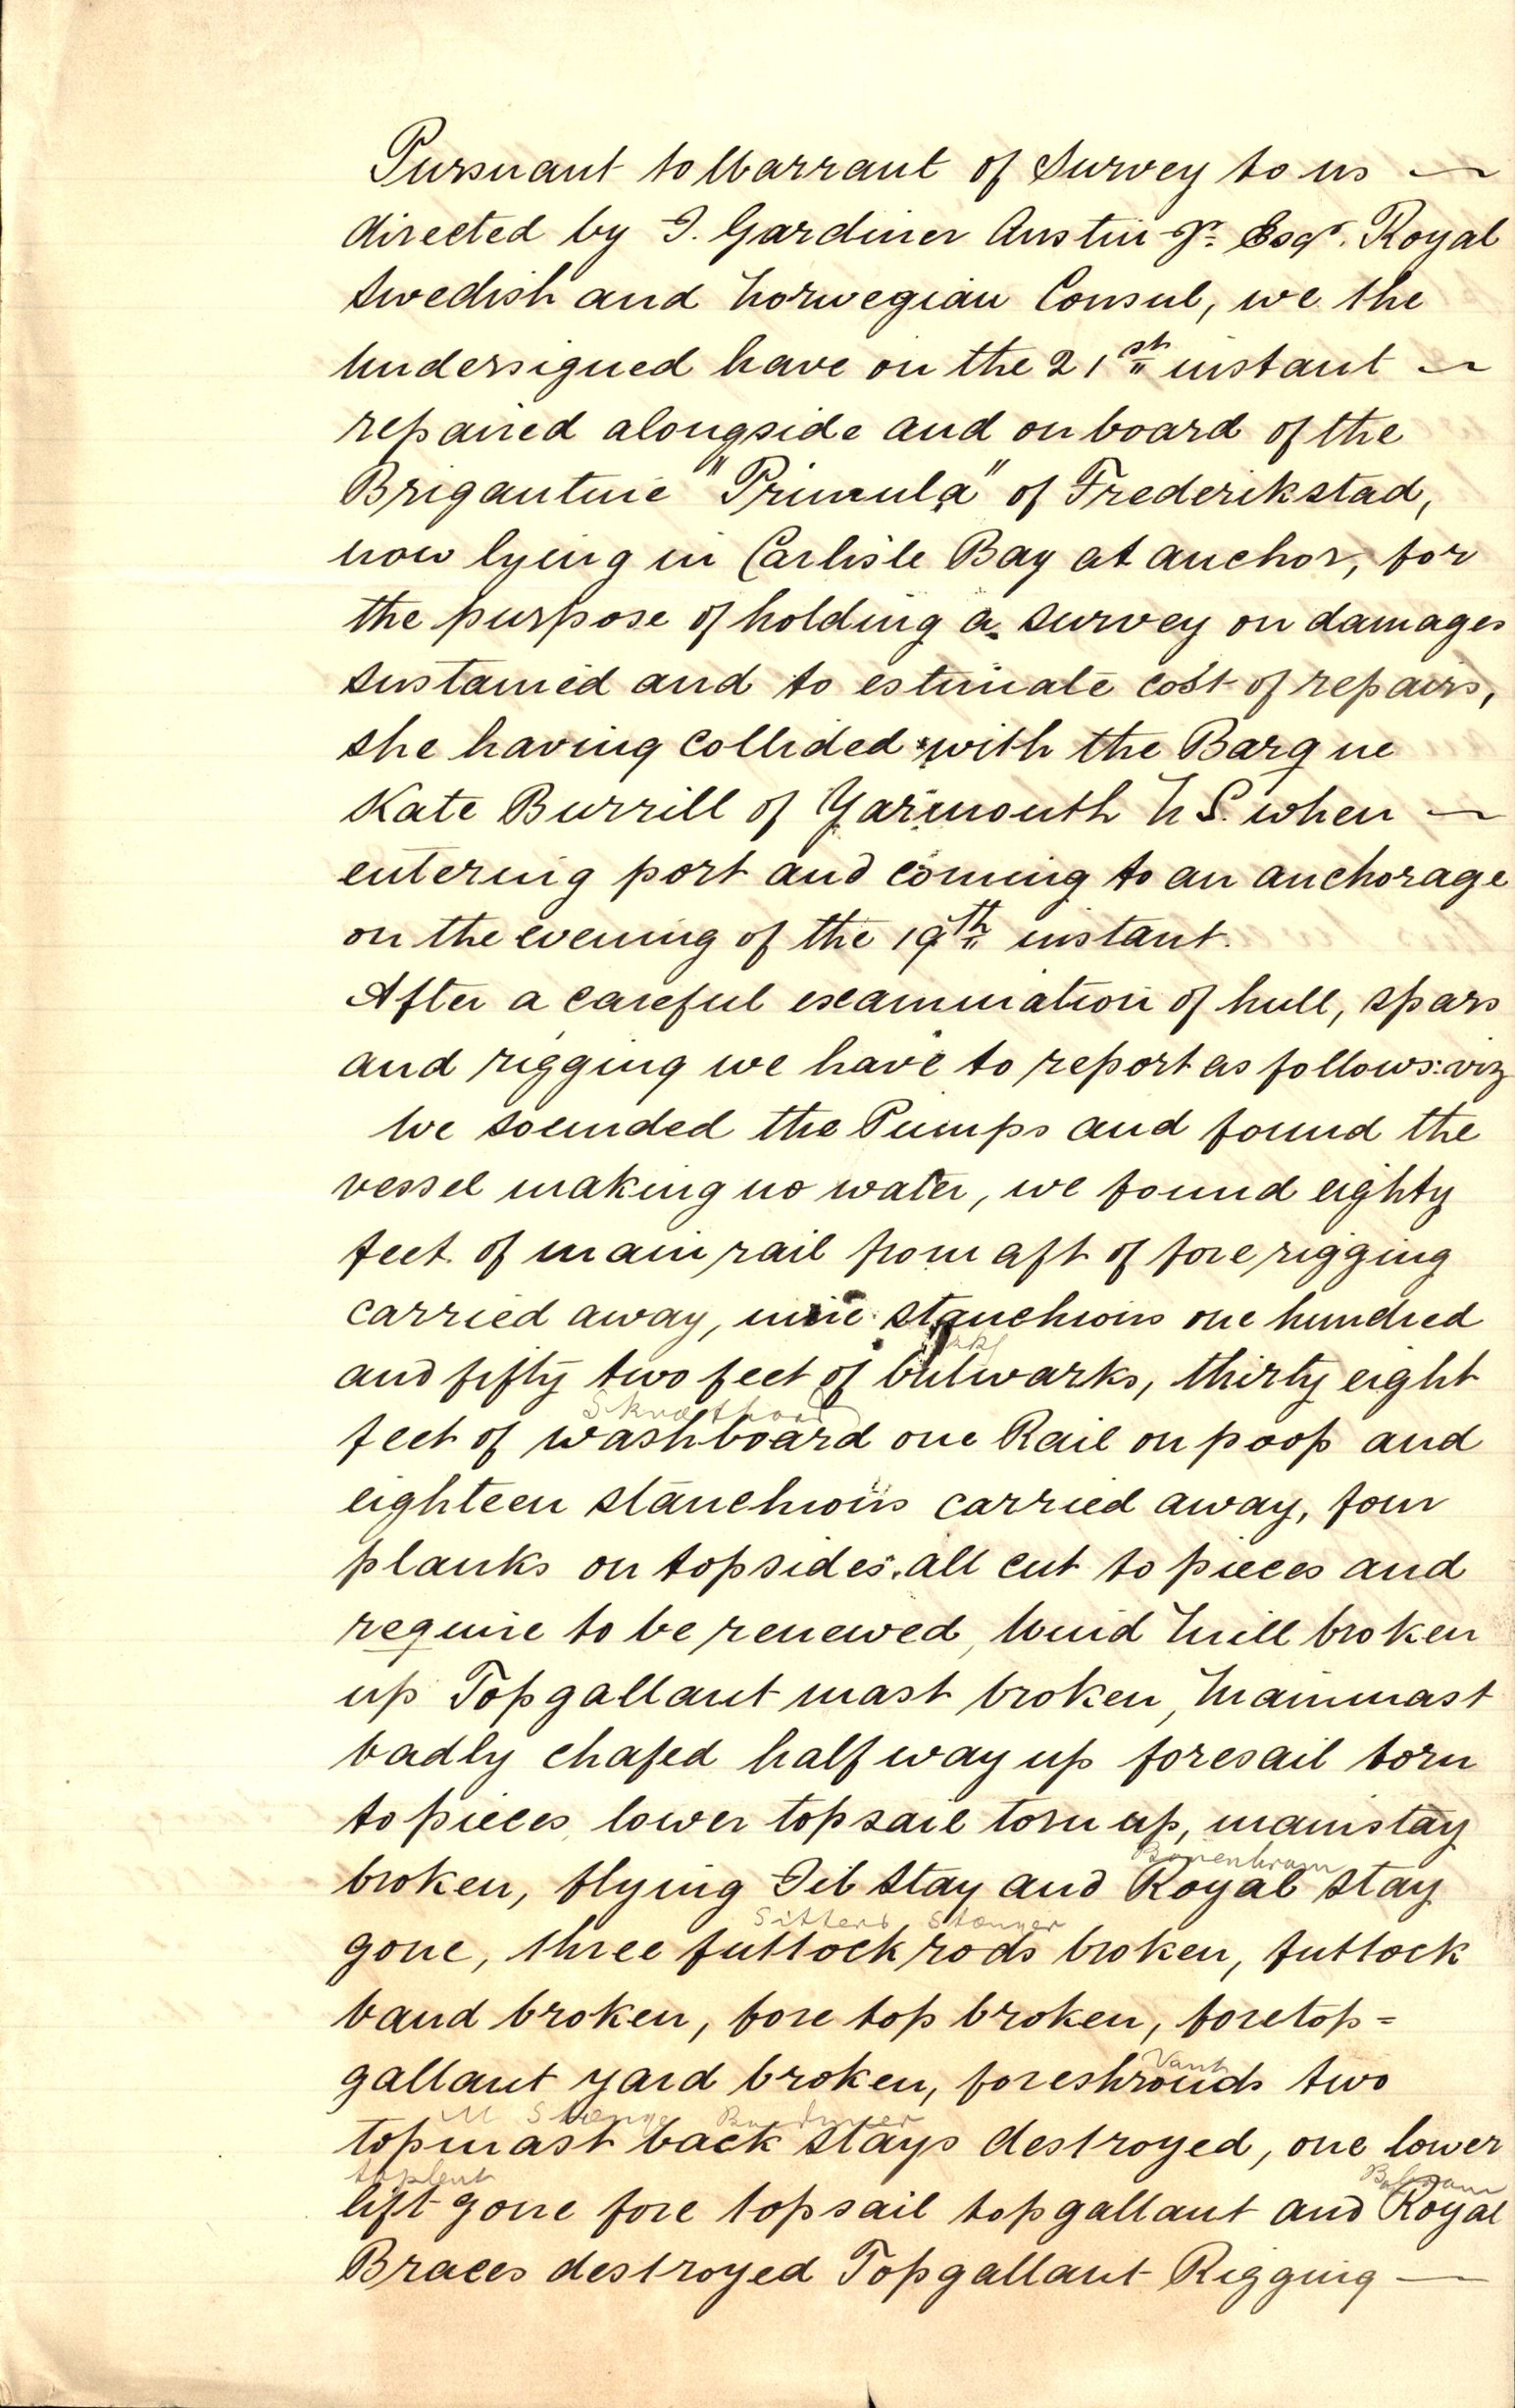 Pursuant to Warrant of Survey to us —
directed by J. Gardiner Austin Jr. Esqr. Royal
Swedish and Norwegian Consul, we the
Undersigned have on the 21st instant —
repaired alongside and on board of the
Brigantine "Primula" of Frederikstad,
now lying in Carlisle Bay at anchor, for
the purpose of holding a survey on damages
sustained and to estimate cost of repairs,
she having collided with the Barque
Kate Burrill of Yarmouth N S. when —
entering port and coming to an anchorage
on the evening of the 19th instant.
After a careful examination of hull, spars
and rigging we have to report as follows: viz
We sounded the Pumps and found the
vessel making no water, we found eighty
feet of main rail from aft of fore rigging
carried away, nine stanchions one hundred
and fifty two feet of bulwarks, thirty eight
feet of washboard one Rail on poop and
eighteen stanchions carried away, four
planks on topsides all cut to pieces and
require to be renewed, Wind Mill broken
up Topgallant mast broken, Mainmast
badly chafed half way up foresail torn
to pieces lower topsail torn up, mainstay
Bovenbram
broken, flying Jib Stay and Royal stay
Stænger
gone, three futtock rods broken, futtock
band broken, fore top broken, foretop=
Vant
gallant yard broken, foreshrouds two
Stænge Barduner
topmast back stays destroyed, one lower
toplent
lift gone fore topsail topgallant and Royal
Braces destroyed Topgallant Rigging —